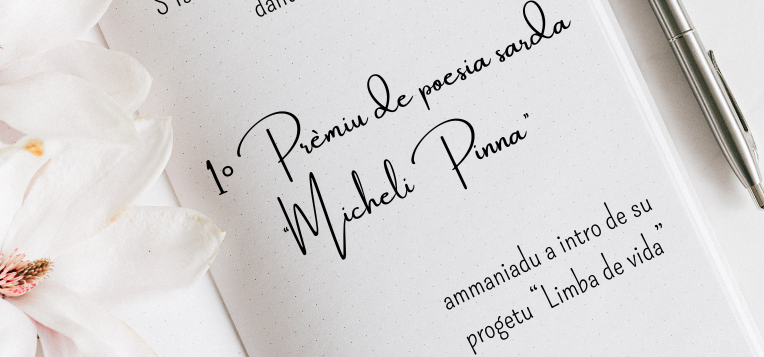 1º Prèmiu de poesia sarda
"Micheli Pinna"
ammaniadu a intro de su
progetu "Limba de vida"